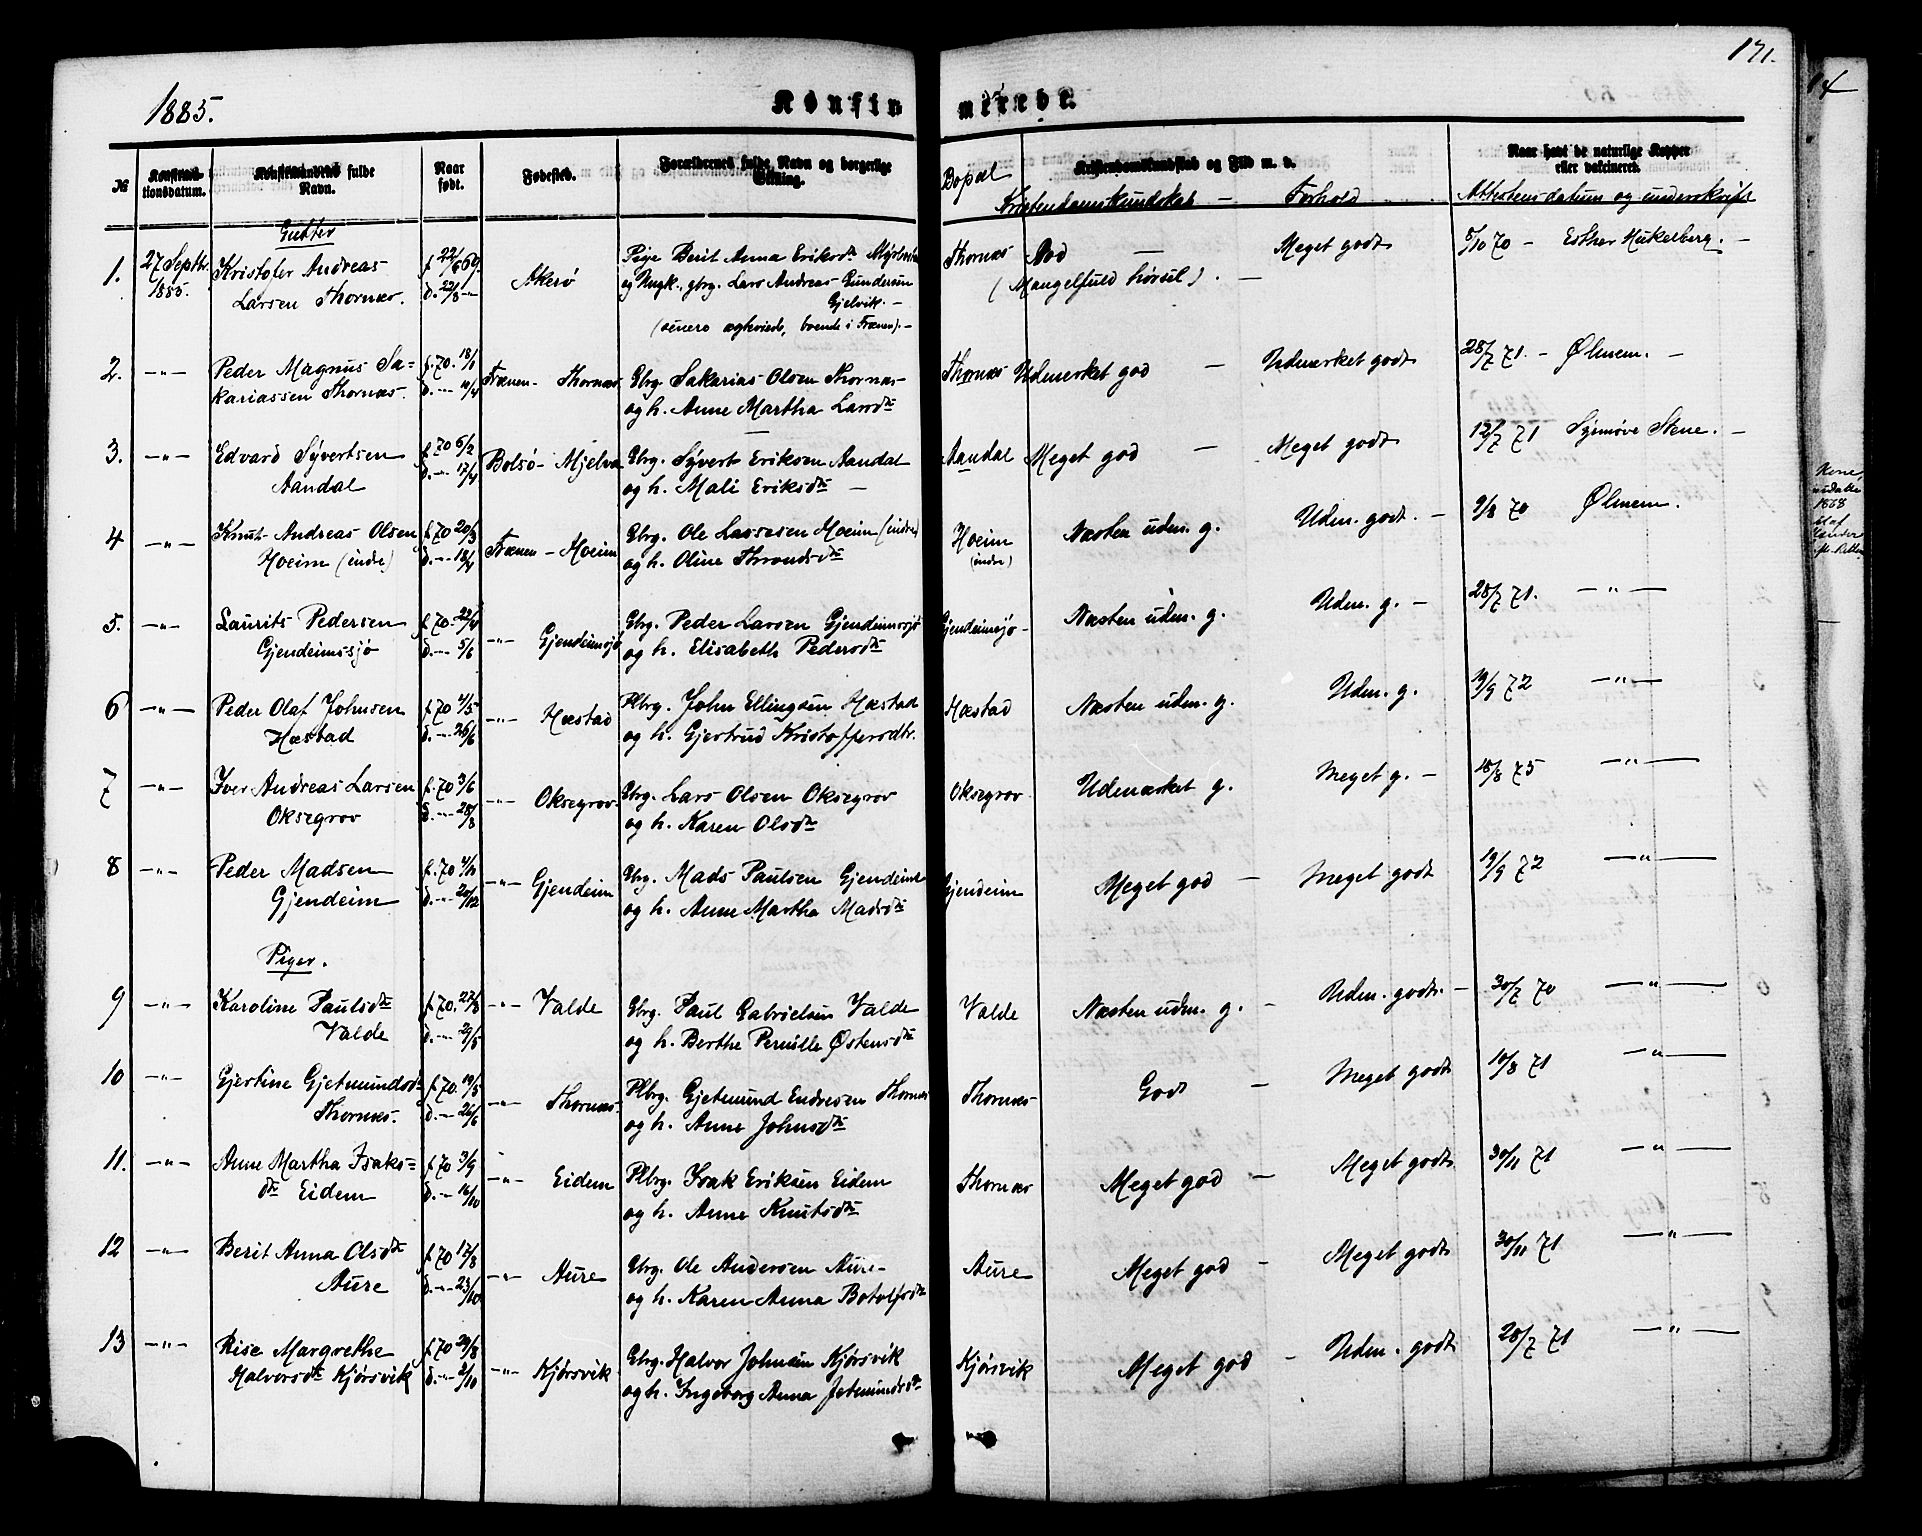 171.
1885.
Konfirmerede.
№
Konfirmationsdatum.
Konfirmandens fulde Navn.
Naar født.
Fødested.
Forældrenes fulde Navn og borgerlige Stilling.
Bopæl
Kristendomskundskab og Flid m. v.
Kristendomskundskab — Forhold
Naar havt de naturlige Kopper eller vakcineret.
Attestens datum og underskrift
Gutter
1. 27 Septbr. 1885. Kristofer Andreas Larsen Thornæs. f. 22/6 69. d. 22/8 -"- Akerø
Pige Berit Anna Eriksdtr
og Ungk., gbrg. Lars Andreas Gundersen Gjelvik. —
(senere ægteviede, boende i Frænen). —
Thornæs God — Meget godt 5/10 70 — Esther Hukelberg. —
(Mangelfuld hørsel). —
2. -"- Peder Magnus Sakariassen Thornæs. f. 70. 18/1 d. -"- 10/4 Frænen — Thornæs
Gbrg. Sakarias Olsen Thornæs
og h. Anne Martha Larsdtr
Thornæs Udmerket god — Udmerket godt 28/7 71. — Ølnem. —
3. -"- Edvard Syvertsen Aandal f. 70 6/2 d. -"- 17/4 Bolsø — Mjelva
Gbrg. Syvert Eriksen Aandal
og h. Mali Eriksdtr —
Aandal Meget god — Meget godt 12/7 71 Synnøve Stene. —
4 -"- Knut Andreas Olsen Hoeim (indre) f. 70 20/3 d. -"- 18/4 Frænen — Hoeim
Gbrg. Ole Lassesen Hoeim (indre)
og h. Oline Throndsdtr
Hoeim (indre) Næsten udm. g. Udm. godt. — 9/8 70 Ølnem.
5. -"- Laurits Pedersen Gjendeimssjø f. 70. 22/4 d. -"- 5/6 -"- Gjendeimsjø
Gbrg. Peder Larsen Gjendeimsjø
og h. Elisabeth Pedersdtr
Gjendeimsjø — Næsten udm. g. Udm. g. — 28/7 71. -"-
6 -"- Peder Olaf Johnsen Hæstad f. 70 4/5 d. -"- 26/6 -"- Hæstad
Plbrg. John Ellingsen Hæstad
og h. Gjertrud Kristoffersdtr.
Hæstad Næsten udm. g. Udm. g. 19/9 72 -"-
7 -"- Iver Andreas Larsen Oksegrov f. 70 3/6 d. -"- 28/8 -"- Oksegrov
Gbrg. Lars Olsen Oksegrov
og h. Karen Olsdtr
Oksegrov Udmærket g. Meget g. — 18/8 75 -"-
8 -"- Peder Madsen Gjendeim f. 70 d. -"- 20/12 -"- Gjendeim
Gbrg. Mads Paulsen Gjendeim
og h. Anne Martha Madsdtr
Gjendeim Meget god — Meget godt 19/9 72 -"-
Piger.
9 -"- Karoline Paulsdtr Valde f. 70. 27/3 d. -"- 29/5 -"- Valde
Gbrg. Paul Gabrielsen Valde
og h. Berthe Pernille Østensdtr
Valde Næsten udm. g. — Udm. godt. — 30/7 70 -"-
10 -"- Gjertine Gjetmundsdtr Thornæs. f. 70. 19/5 d. -"- 26/6 -"- Thornæs.
Plbrg. Gjetmund Endresen Thornæs
og h. Anne Johnsdtr
Thornæs Godt — Meget godt 10/8 71 -"-
11. -"- Anne Martha Isaksdtr Eidem f. 70 3/9 d. -"- 16/10 -"- Eidem
Plbrg. Isak Eriksen Eidem
og h. Anne Knutsdtr
Thornæs Meget god — Meget godt 30/11 71 -"-
12 -"- Berit Anna Olsdtr Aure f. 70 17/8 d. -"- 23/10 -"- Aure
Gbrg. Ole Andersen Aure
og h. Karen Anna Botolfsdtr
Aure Meget god — Meget godt 30/11 71 -"-
13 -"- Rise Margrethe Halvorsdtr Kjørsvik f. 70 29/8 d. -"- 2/10 -"- Kjørsvik
Gbrg. Halvor Johnsen Kjørsvik
og h. Ingeborg Anna Jetmundsdtr
Kjørsvik Meget god — Udm. godt 28/7 71 -"-